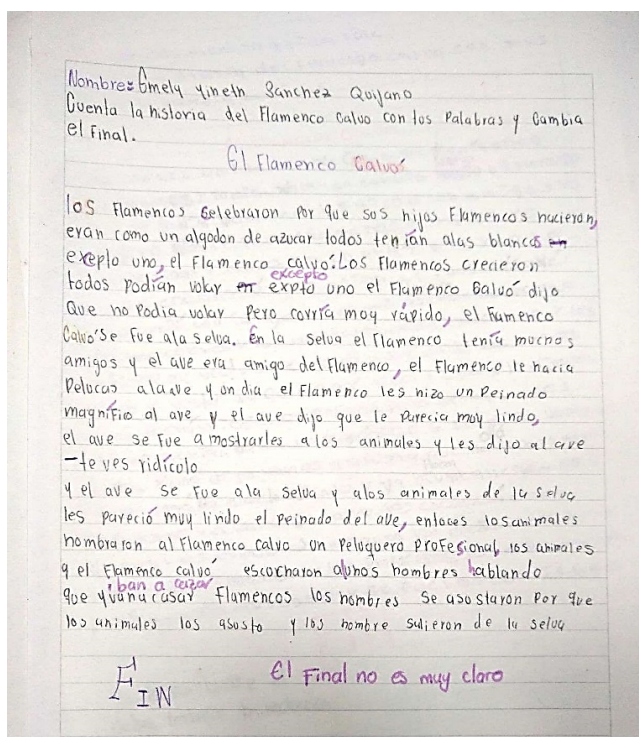 Nombre: Emely yineth Sanchez Quijano
Cuenta la historia del Flamenco Calvo con tus Palabras y Cambia
el Final.
El Flamenco Calvo
los Flamencos Celebraron Por que sus hijos Flamencos nacieran,
eran como un algodon de azucar todos tenían alas blancas en
exeplo uno, el Flamenco calvo. Los Flamencos crecieron
excepto
todos podían volar en expto uno el Flamenco Calvó dijo
Que no Podia volar Pero corría muy rápido, el Flamenco
Calvo se Fue ala selva. En la selva el Flamenco tenía muchos
amigos y el ave era amigo del Flamenco, el Flamenco le hacia
Pelucas ala ave y un dia el Flamenco les hizo un Peinado
magnífio al ave y el ave dijo que le Parecia muy lindo,
el ave se Fue a mostrarles a los animales y les dijo al ave
- te ves ridículo
y el ave se Fue ala selva y alos animales de la selva
les pareció muy lindo el peinado del ave, entoces los animales
nombraron al Flamenco calvo un Peluquero Profesional, los animales
y el Flamenco calvó escocharon alunos hombres hablando
iban a cazar
que yvana casar Flamencos los hombres se asustaron Por que
los animales los asusto y los hombre salieron de la selva
FIN
El Final no es muy claro